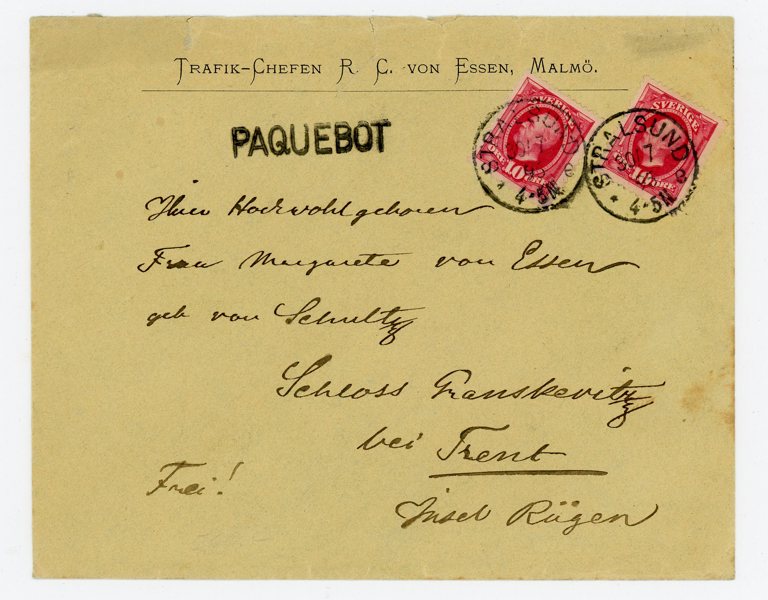 Trafik-Chefen R. C. von Essen, Malmö.
PAQUEBOT
SVERIGE
STRALSUND
* 4-5N e
SVERIGE
10 ÖRE
STRALSUND
30 7
* 4-5N e
Ihro Hochwohlgeboren
Frau Margarete von Essen
geb von Schultz
Schloss Granskevitz
bei Trent
Frei!
Insel Rügen